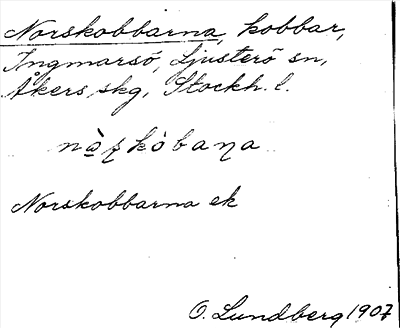 Norskobbarna, kobbar,
Ingmarsö, Ljusterö sn,
Åkers skg, Stockh. l.
nò̲ʂkòbaɳa
Norskobbarna ek
O. Lundberg 1907